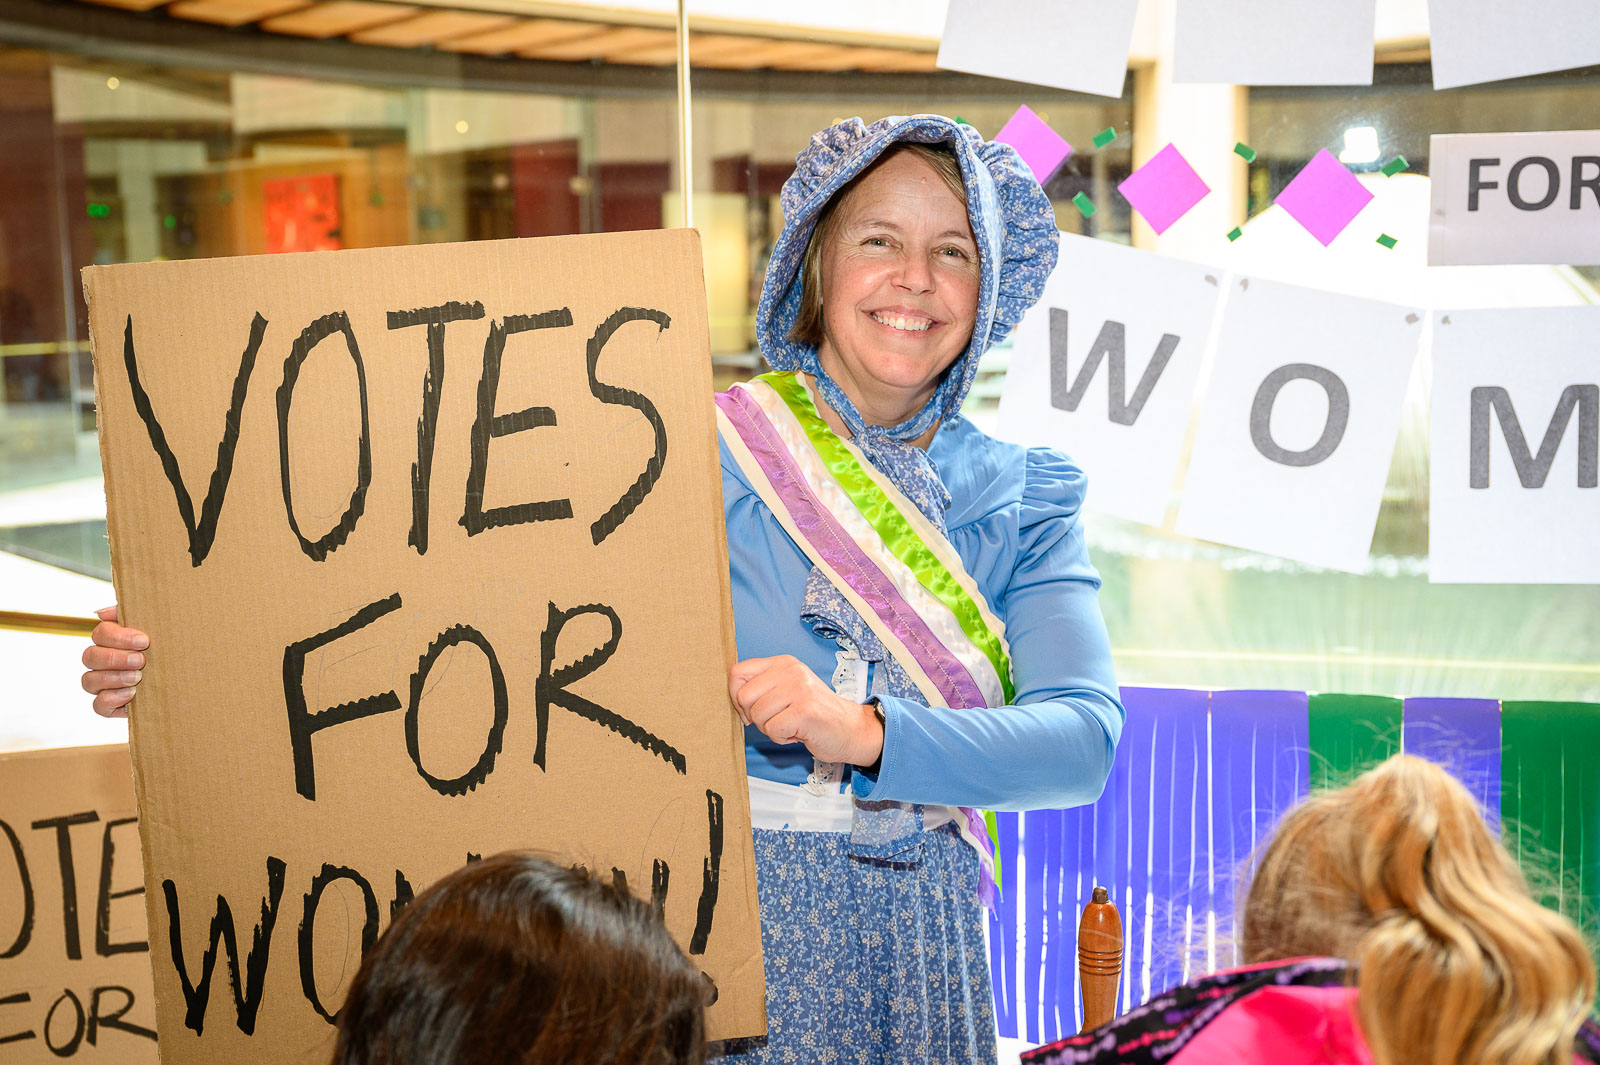 VOTES
FOR
WOMEN!
OTE
FOR
FOR
WOM